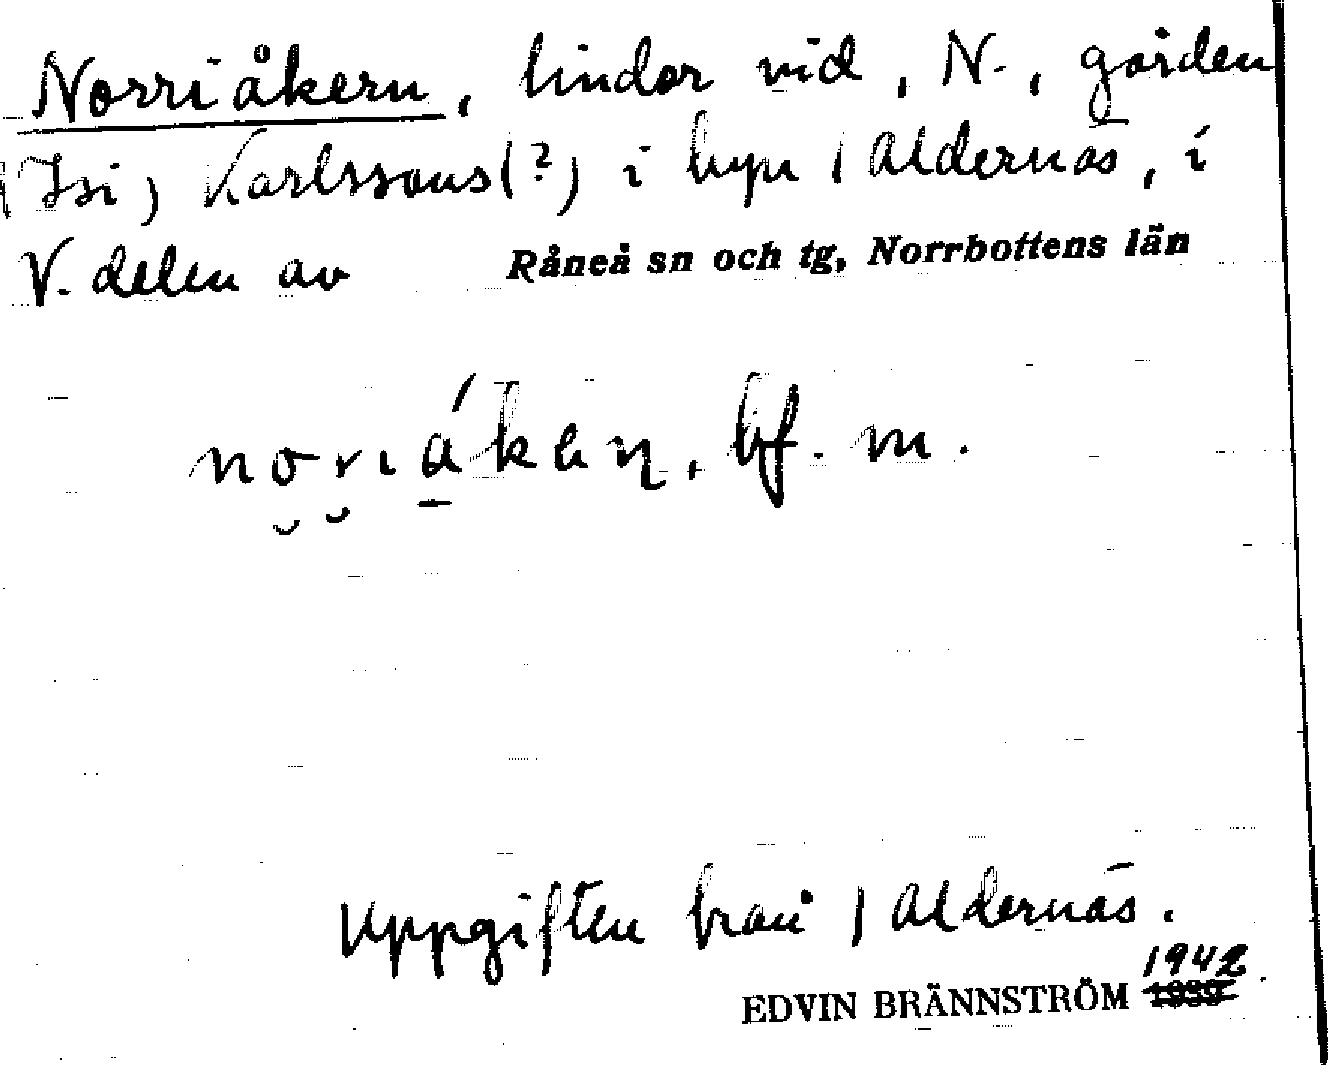 Norriåkern, lindor vid, N., gården
(Isi) Karlssons(?) i byn / Aldernäs, i
V. delen av Råneå sn och tg, Norrbottens län
norıåkeɳ, bf. m.
Uppgiften från / Aldernäs.
1942
EDVIN BRÄNNSTRÖM 1939